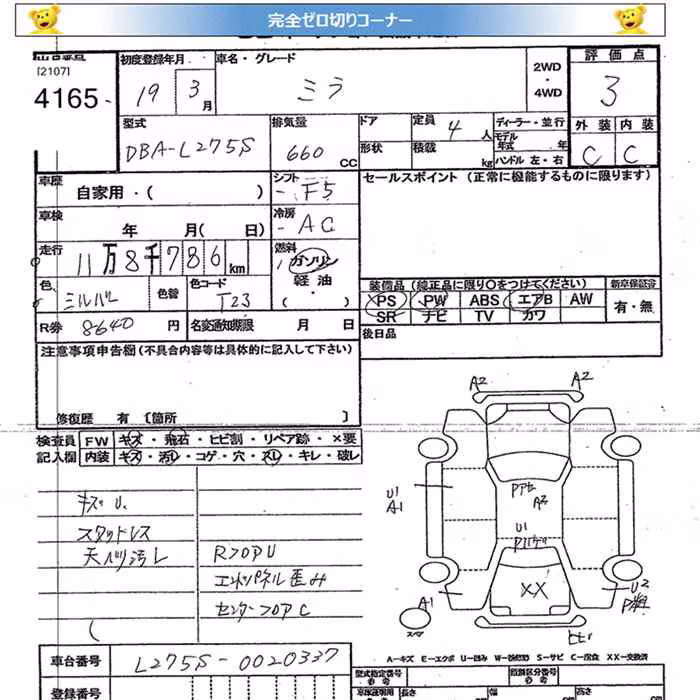 完全ゼロ切りコーナー
[2107]
4165
初度登録年月 車名・グレード 2WD ・ 4WD 評価点
19 3月 ミラ 3
型式 排気量 ドア 定員 ディーラー・並行 外装 内装
DBA-L275S 660 CC 形状 積載 4人 kg モデル年式 年 ハンドル 左・右 C C
車歴 自家用・( ) シフト F5 セールスポイント (正常に機能するものに限ります)
車検 年 月( 日) 冷房 AC
走行 11万8千786km 燃料 ガソリン 軽油 ・( )
色 色替 色コード T23
装備品 (純正品に限り○をつけてください) 新車保証書
PS PW ABS エアB AW 有・無
SR ナビ TV カワ
R券 8640円 名変通知期限 月 日 後日品
注意事項申告欄 (不具合内容等は具体的に記入して下さい)
修復歴 有 〔箇所 〕
検査員 FW キズ・飛石・ヒビ割・リペア跡・×要
記入欄 内装 キズ・汚レ・コゲ・穴・スレ・キレ・破レ
キズ U.
スタッドレス
天ベリ汚レ RフロアU
エンドパネル歪み
センターフロアC
A2 A2
U1
A1
A2
U1
XX
A1
U2
スペア
A-キズ E-エクボ U-凹み S-サビ C-腐食 XX-交換済
車台番号 L275S-0020337
登録番号
型式指定番号 類別区分番号
長さ